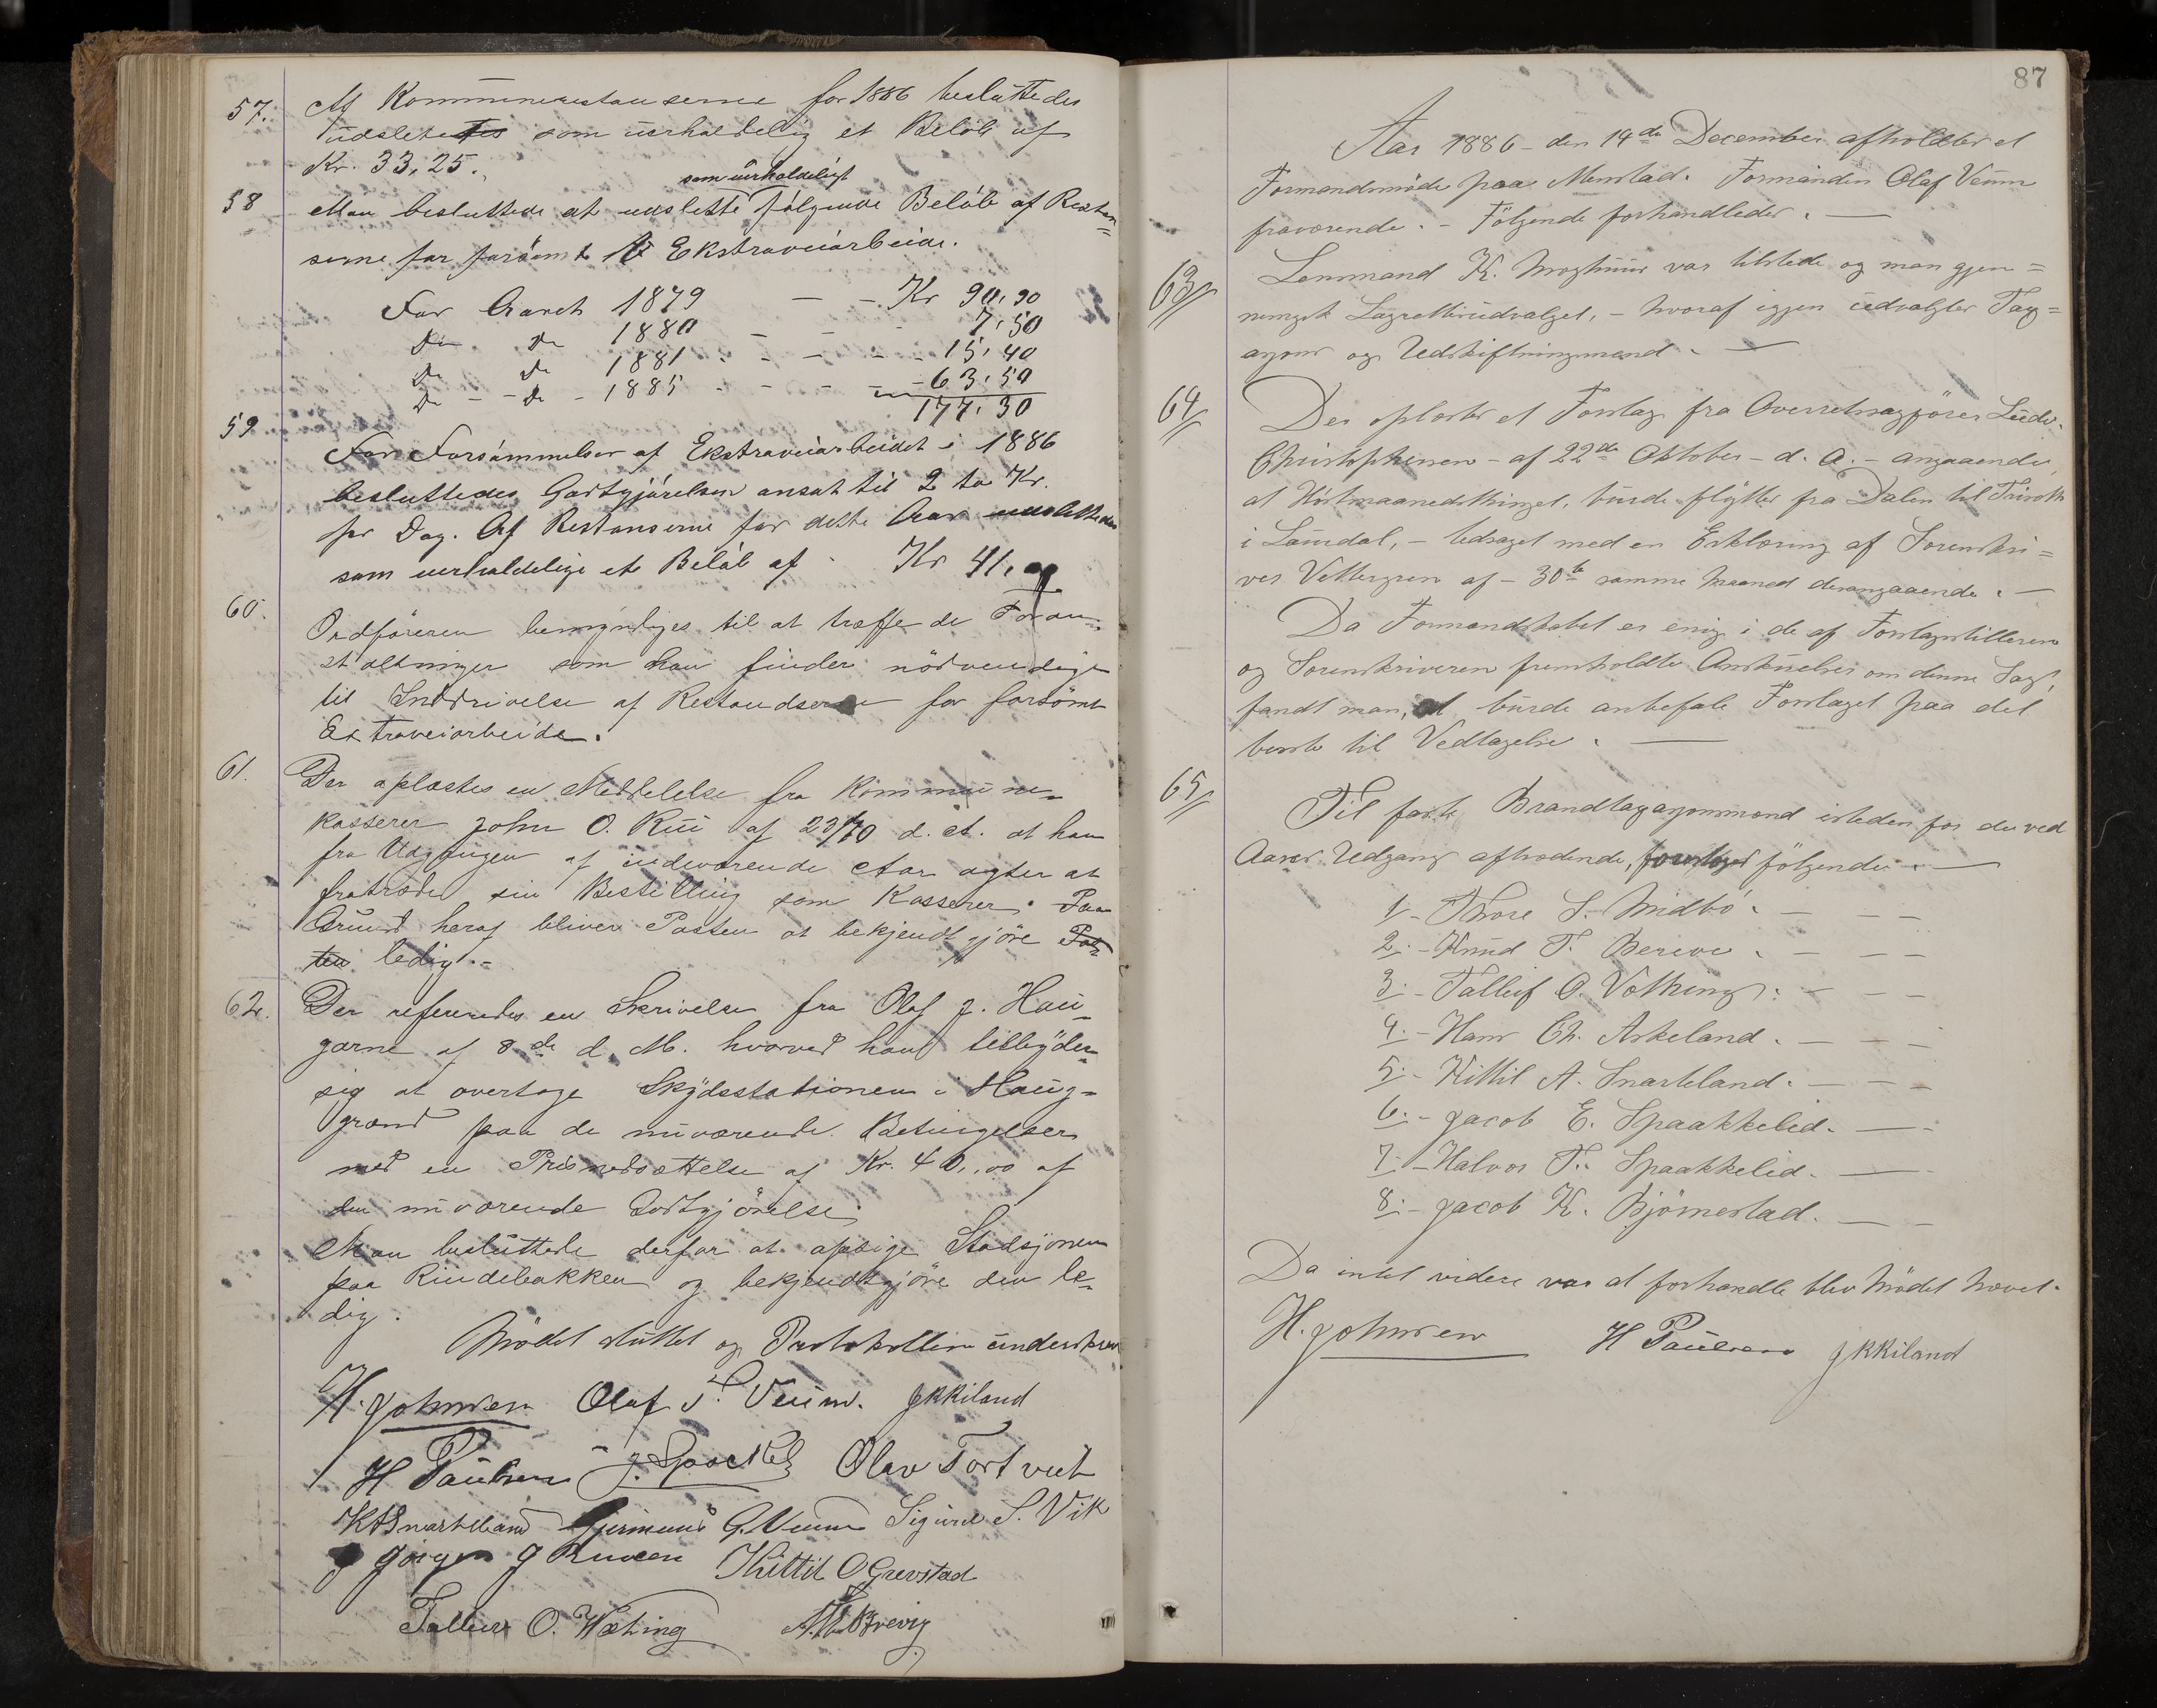 57. Af Kommunerestanserne for 1886 besluttedes
udslettetes som uerholdelig et Beløb af
Kr. 33,25.
som uerholdeligt
58 Man besluttede at udslette følgende Beløb af Restan=
serne for forsømt Ekstraveiarbeide.
For Aaret 1879 — - Kr 90,90
Do Do 1880 - - - 7,50
Do Do 1881 - - - - 15,40
Do - - Do - 1885 - - - - 63,50
177,30
59 For Forsømmelser af Ekstraveiarbeidet i 1886
besluttedes Godtgjørelsen ansat til 2 to Kr.
pr Dag. Af Restanserne for dette Aar udslettedes
som uerholdelige et Beløb af Kr 41,
60. Ordføreren bemyndiges til at træffe de Foran-
staltninger som han finder nødvendige
til Inddrivelse af Restandserne for forsømt
Extraveiarbeide.
61. Der oplæstes en Meddelelse fra Kommune-
kasserer John O. Rui af 23/10 d. A. at han
fra Udgangen af indeværende Aar agter at
fratræde sin Bestilling som Kasserer. Paa
Grund heraf bliver Posten at bekjendtgjøre Pos-
ten ledig.-
62. Der refereredes en Skrivelse fra Olaf J. Hau-
garne af 8de d. M. hvorved han tilbyder
sig at overtage Skydsstationen i Haug-
grænd paa de nuværende Betingelser
med en Prisnedsættelse af Kr. 40,00 af
den nuværende Godtgjørelse
Man besluttede derfor at opsige Stadsjonen
paa Rindebakken og bekjendtgjøre den le-
dig.
Mødet sluttet og Protokollen underskrev
H. Johnsen Olaf T. Veum. JKKiland
H Paulsen Olav Tortveit
KASnarteland Gjermund G. Veum Sigurd S. Vik
Jørgen J Kittil O Grevstad
Tallev O. Wæting Brevig
87
Aar 1886 - den 14de December afholdtes et
Formandsmøde paa Menstad. Formanden Olaf Veum
fraværende. - Følgende forhandledes. —
63 Lensmand K. Moghuus var tilstede og man gjen=
nemgik Lagrettesudvalget, - hvoraf igjen udvalgtes Tax=
atjons og Udskiftningsmænd. —
64 Der oplæstes et Forslag fra Overretssagfører Ludv.
Christophersen - af 22de Oktober - d. A. - angaaende,
at Høstmaanedsthinget, burde flyttes fra Dalen til Triset
i Laurdal, - ledsaget med en Erklæring af Sorenskri=
ver Vettergren af - 30te samme Maaned desangaaende. —
Da Formandskabet er enig i de af Forslagsstilleren
og Sorenskriveren fremholdte Anskuelser om denne Sag,
fandt man, at burde anbefale Forslaget paa det
beste til Vedtagelse. —
65 Til faste Brandtaxasjonsmænd isteden for de ved
Aarets Udgang aftrædende, foreslaaes følgende: —
1 - Thore S. Midbø. - - -
2. - Knud T. Bereve. - - -
3. - Tallеif O. Vøthing. - - -
4. - Hans Ch. Askeland. - - -
5. - Kittil A. Snarteland. - - -
6. - Jacob E. Spaakkelid. — -
7. - Halvor T. Spaakkelid. — -
8. - Jacob K. Bjørnestad. — -
Da intet videre var at forhandle blev Mødet hævet.
H. Johnsen H Paulsen JKKiland